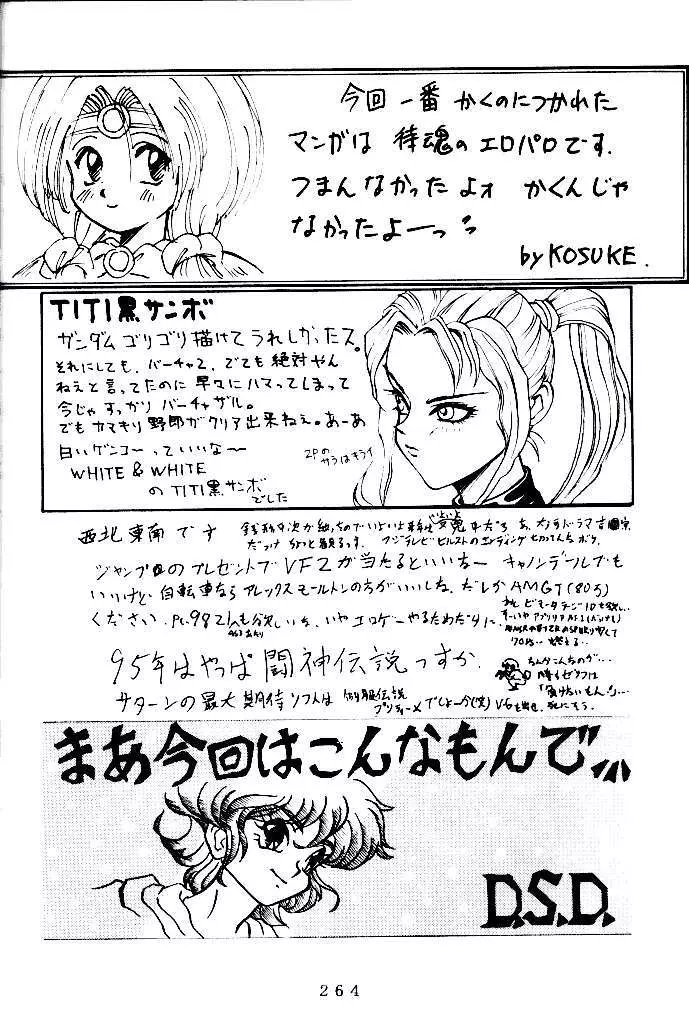 今回 一番 かくのにつかれた
マンガは 侍魂の エロパロ です.
つまんなかった よォ かくんじゃ
なかったよーっ
by KOSUKE.
TITI黒サンボ
ガンダムゴリゴリ描けてうれしかったス。
それにしても、バーチャ2、でても絶対やん
ねぇと言ってたのに早々にハマってしまって
今じゃすっかりバーチャザル。
でもカマキリ野郎がクリア出来ねぇ。あーあ
白いゲンコーっていいな〜
2Pの
サラはキライ
WHITE & WHITE
の TITI黒サンボ
でした
西北東南です
ジャンプの プレゼントで VF2が当たるといいなー キャノンデールでも
いいけど、自転車なら アレックスモールトンの方がいいしな、だれか AMGT(80万)
ください. PC9821へも欲しいな、いやエロゲーやるためだけに.
95年はやっぱ闘神伝説っすか.
サターンの最大期待ソフトは 制服伝説
プリティーメでしょーか(笑)
まあ今回はこんなもんで
D.S.D.
264